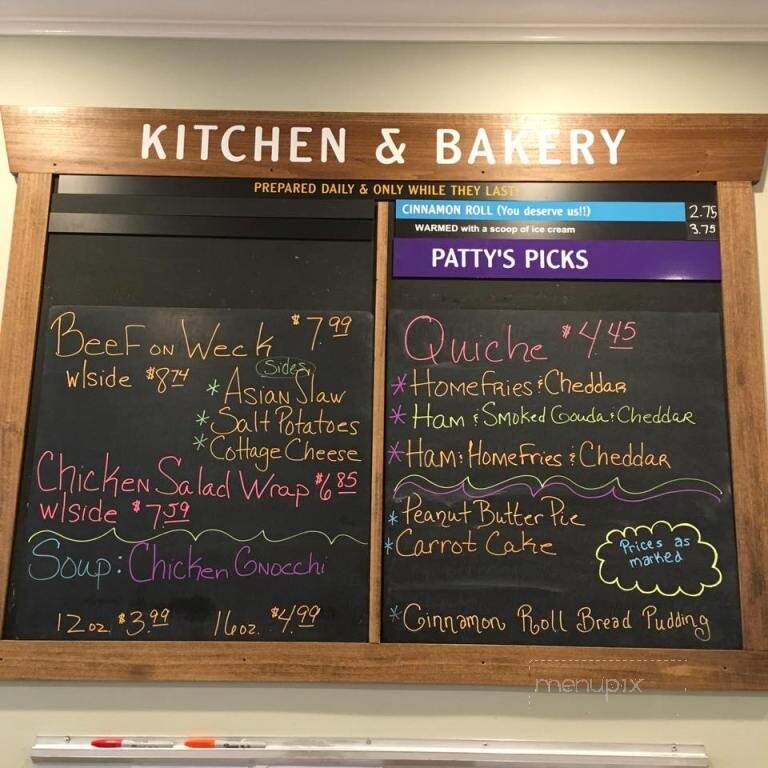 KITCHEN & BAKERY
PREPARED DAILY & ONLY WHILE THEY LAST!
Beef on Weck $7.99
w/side $8.74
Sides
* Asian Slaw
* Salt Potatoes
* Cottage Cheese
Chicken Salad Wrap $6.85
w/side $7.59
Soup: Chicken Gnocchi
12 oz. $3.99 16 oz. $4.99
CINNAMON ROLL (You deserve us!!) 2.75
WARMED with a scoop of ice cream 3.75
PATTY'S PICKS
Quiche $4.45
* Homefries & Cheddar
* Ham & Smoked Gouda & Cheddar
* Ham & Homefries & Cheddar
* Peanut Butter Pie
* Carrot Cake
Prices as
marked
* Cinnamon Roll Bread Pudding
menupix